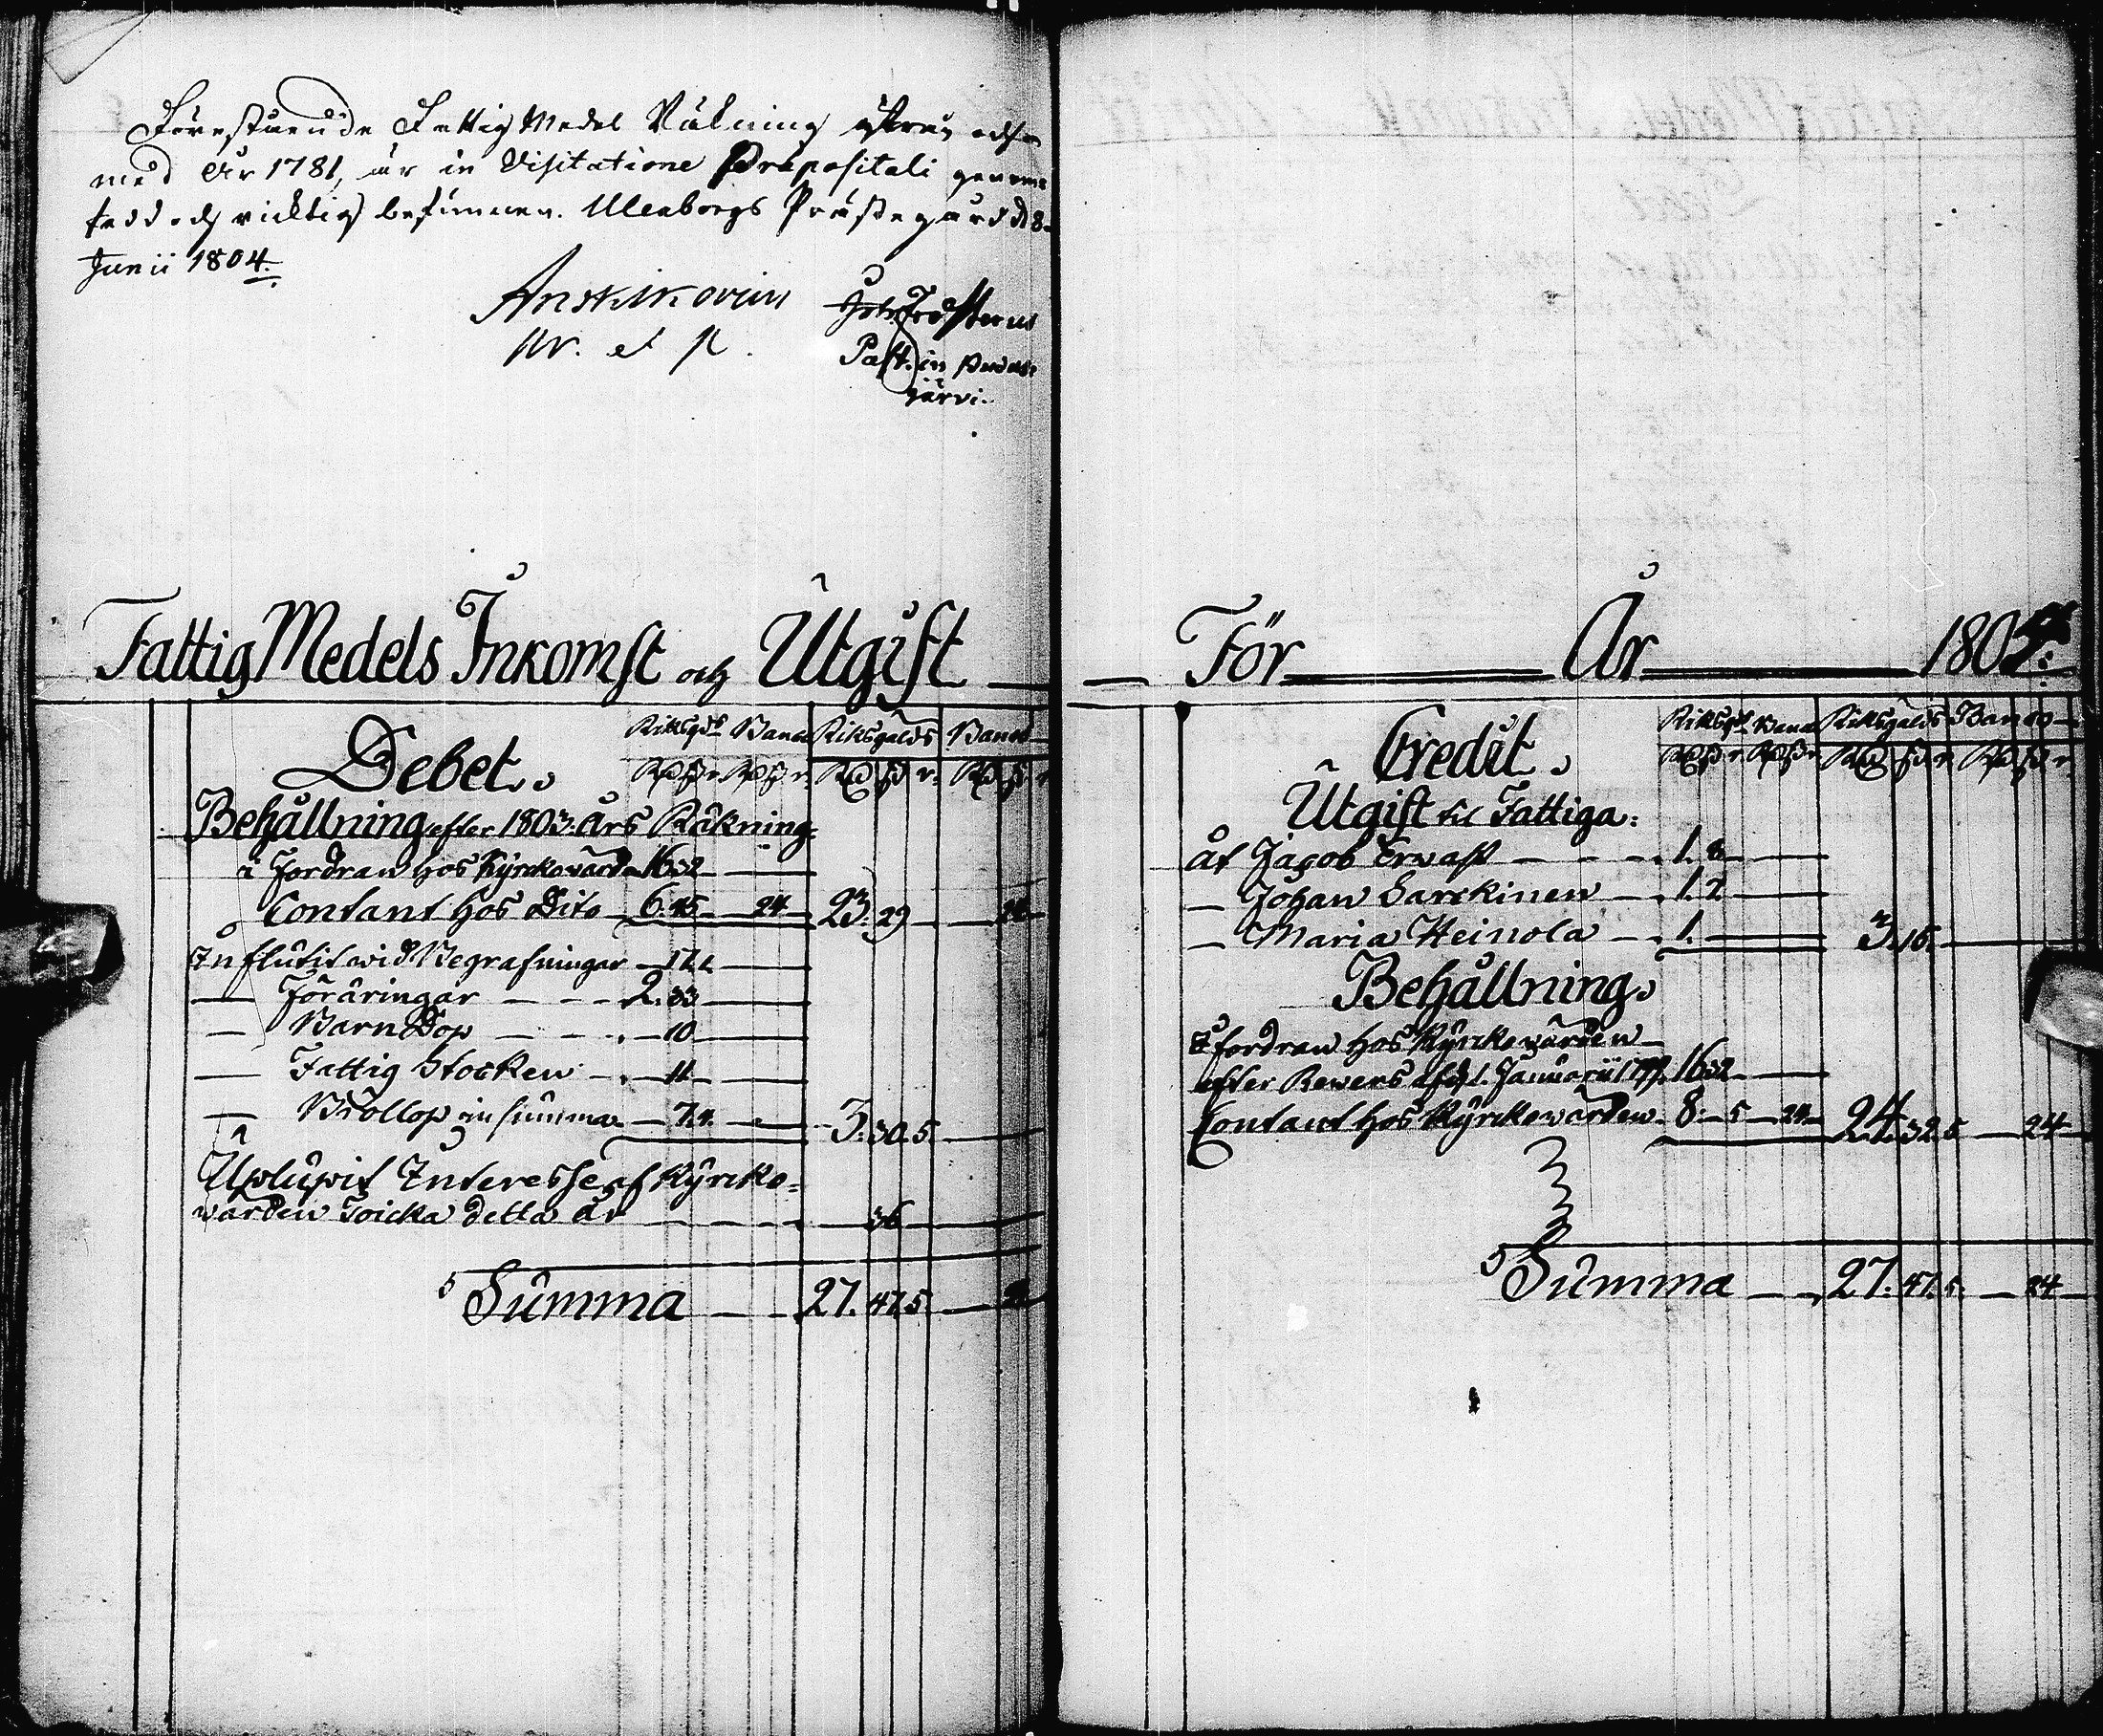 Förestående Fattig Medel Räkning ifrån och
med År 1781, är in Visitatione Præpositali genom
sedd och richtig befunnen. Uleåborgs Prästegård d. 8
Junii 1804.
Joh. Frosterus
Past. in Pudas
järvi.
Fattig Medels Inkomst och Utgift
Debet.
Riksgds Banco Riksgälds Banco
Rd ß r. Rd ß r. Rd ß r. Rd ß r.
Behållning efter 1803. Års Räkning.
i Fordran hos Kyrckowärden 16.32
Contant hos Dito 6.45 24 23.29 24
Influtit wid Begrafningar 17.1
Föräringar 2.33
Barn Dop 10
Fattig Stocken 11
Bröllop in summa 7.4 3.30.5
Uplupit Interesse af Kyrcko-
wärden Toicka detta år 36
Summa 27.47.5. 24
För År 1804.
Credit.
Riksgds Banco Riksgälds Banco
Rd ß r. Rd ß r. Rd ß r. Rd ß r.
Utgift til Fattiga:
åt Jacob Erwast 1.8
Johan Sarckinen 1.7
Maria Heinola 1. 3.15.
Behållning.
I fordran hos Kyrckowärden
efter Revers af d. 1. Januarii 16.32
Contant hos Kyrckowärden 8. 5 24 24.32.5 24
Summa 27.47.5. 24